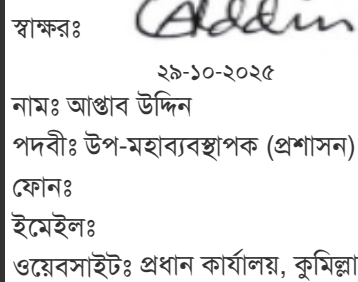 স্বাক্ষরঃ Alddin
২৯-১০-২০২৫
নামঃ আপ্তাব উদ্দিন
পদবীঃ উপ-মহাব্যবস্থাপক (প্রশাসন)
ফোনঃ
ইমেইলঃ
ওয়েবসাইটঃ প্রধান কার্যালয়, কুমিল্লা